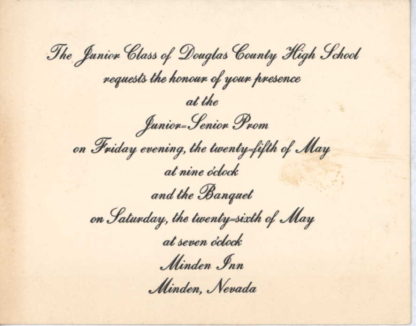 The Junior Class of Douglas County High School
requests the honour of your presence
at the
Junior-Senior Prom
on Friday evening, the twenty-fifth of May
at nine o'clock
and the Banquet
on Saturday, the twenty-sixth of May
at seven o'clock
Minden Inn
Minden, Nevada